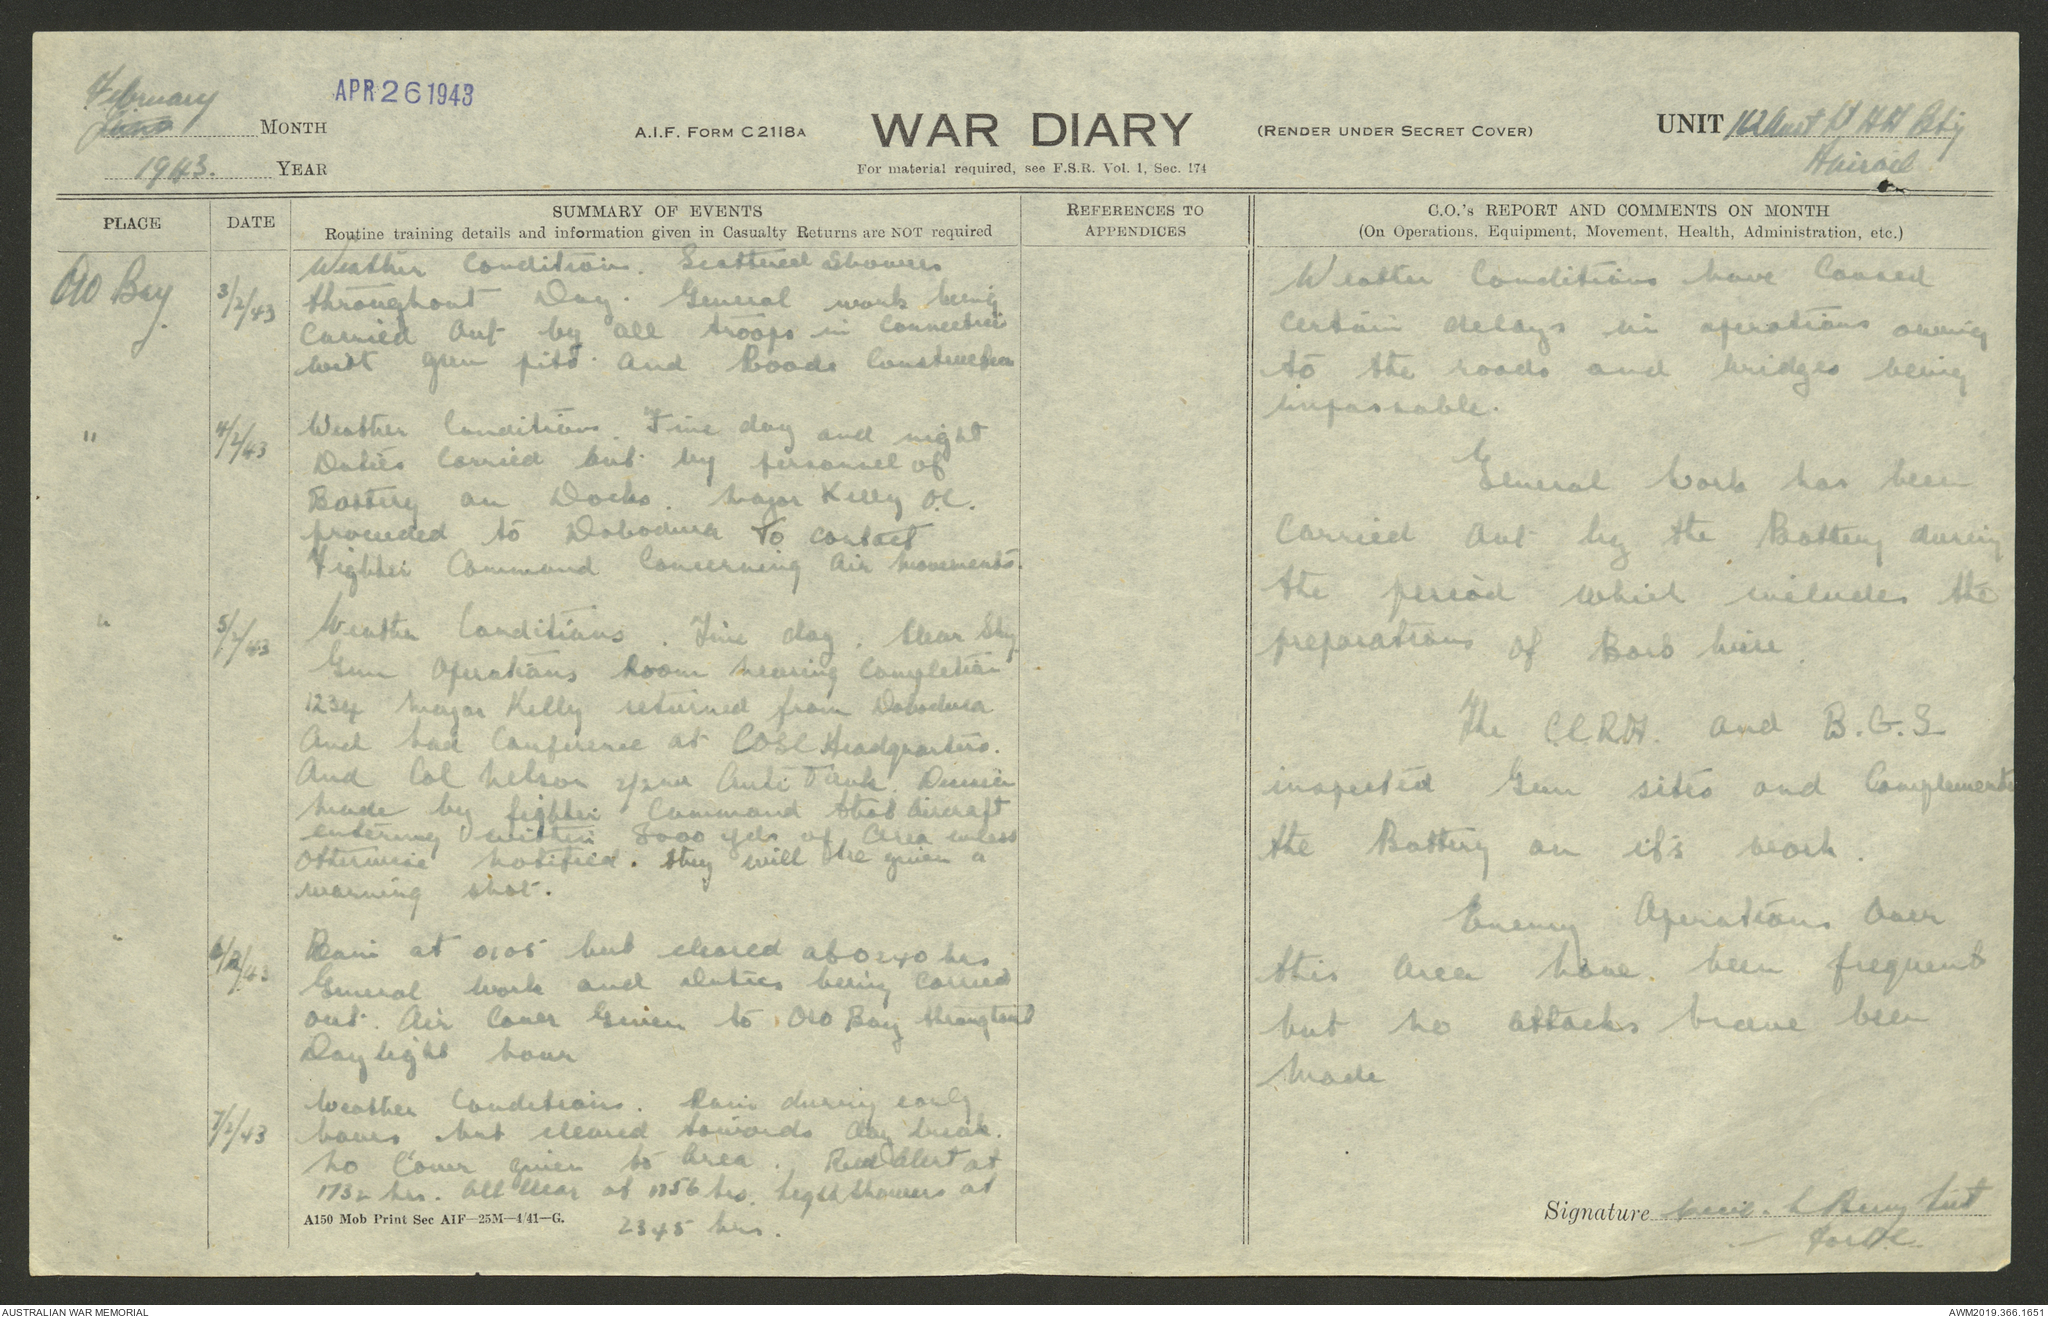 February
MONTH
1943. YEAR
APR 26 1943
A.I.F. FORM C2118A
WAR DIARY
(RENDER UNDER SECRET COVER)
For material required, see F.S.R. Vol. 1, Sec. 174
UNIT 162 Aust Lt AA Bty
PLACE
DATE
SUMMARY OF EVENTS
Routine training details and information given in Casualty Returns are NOT required
REFERENCES TO
APPENDICES
C.O.'s REPORT AND COMMENTS ON MONTH
(On Operations, Equipment, Movement, Health, Administration, etc.)
Oro Bay
3/2/43
Weather Conditions. Scattered Showers
throughout Day. General work being
Carried Out by all troops in Connection
with gun pits and Roads Construction
"
4/2/43
Weather Conditions. Fine day and night
Duties Carried out by personnel of
Battery on Docks. Major Kelly O.C.
proceeded to Dobodura To contact
Fighter Command Concerning Air Movements.
"
5/2/43
Weather Conditions. Fine day. Clear Sky
Gun Operations Room nearing Completion
1234 Major Kelly returned from Dobodura
And had Conference at COSC Headquarters.
And Col Nelson 2/2nd Anti Tank. Decision
made by fighter Command that Aircraft
entering within 8000 yds of Area unless
Otherwise notified. they will be given a
warning shot.
"
6/2/43
Rain at 0105 but cleared at 0240 hrs
General work and Duties being Carried
out. Air Cover Given to Oro Bay throughout
Daylight hour
7/2/43
Weather Conditions. Rain during early
hours but cleared towards day break.
No Cover given to Area. Red Alert at
1732 hrs. All Clear at 1756 hrs. Light showers at
2345 hrs.
A150 Mob Print Sec AIF—25M—4/41—G.
Weather Conditions have Caused
Certain delays in operations owing
to the roads and bridges being
impassable.
General Work has been
Carried Out by the Battery during
the period which includes the
preparations of Barb Wire.
The C.C.R.A. and B.G.S
inspected Gun sites and Complemented
the Battery on it's work.
Enemy Operations Over
this Area have been frequent
but no attacks have been
Made
Signature L Berry Lieut
for O.C.
AUSTRALIAN WAR MEMORIAL
AWM2019.366.1651